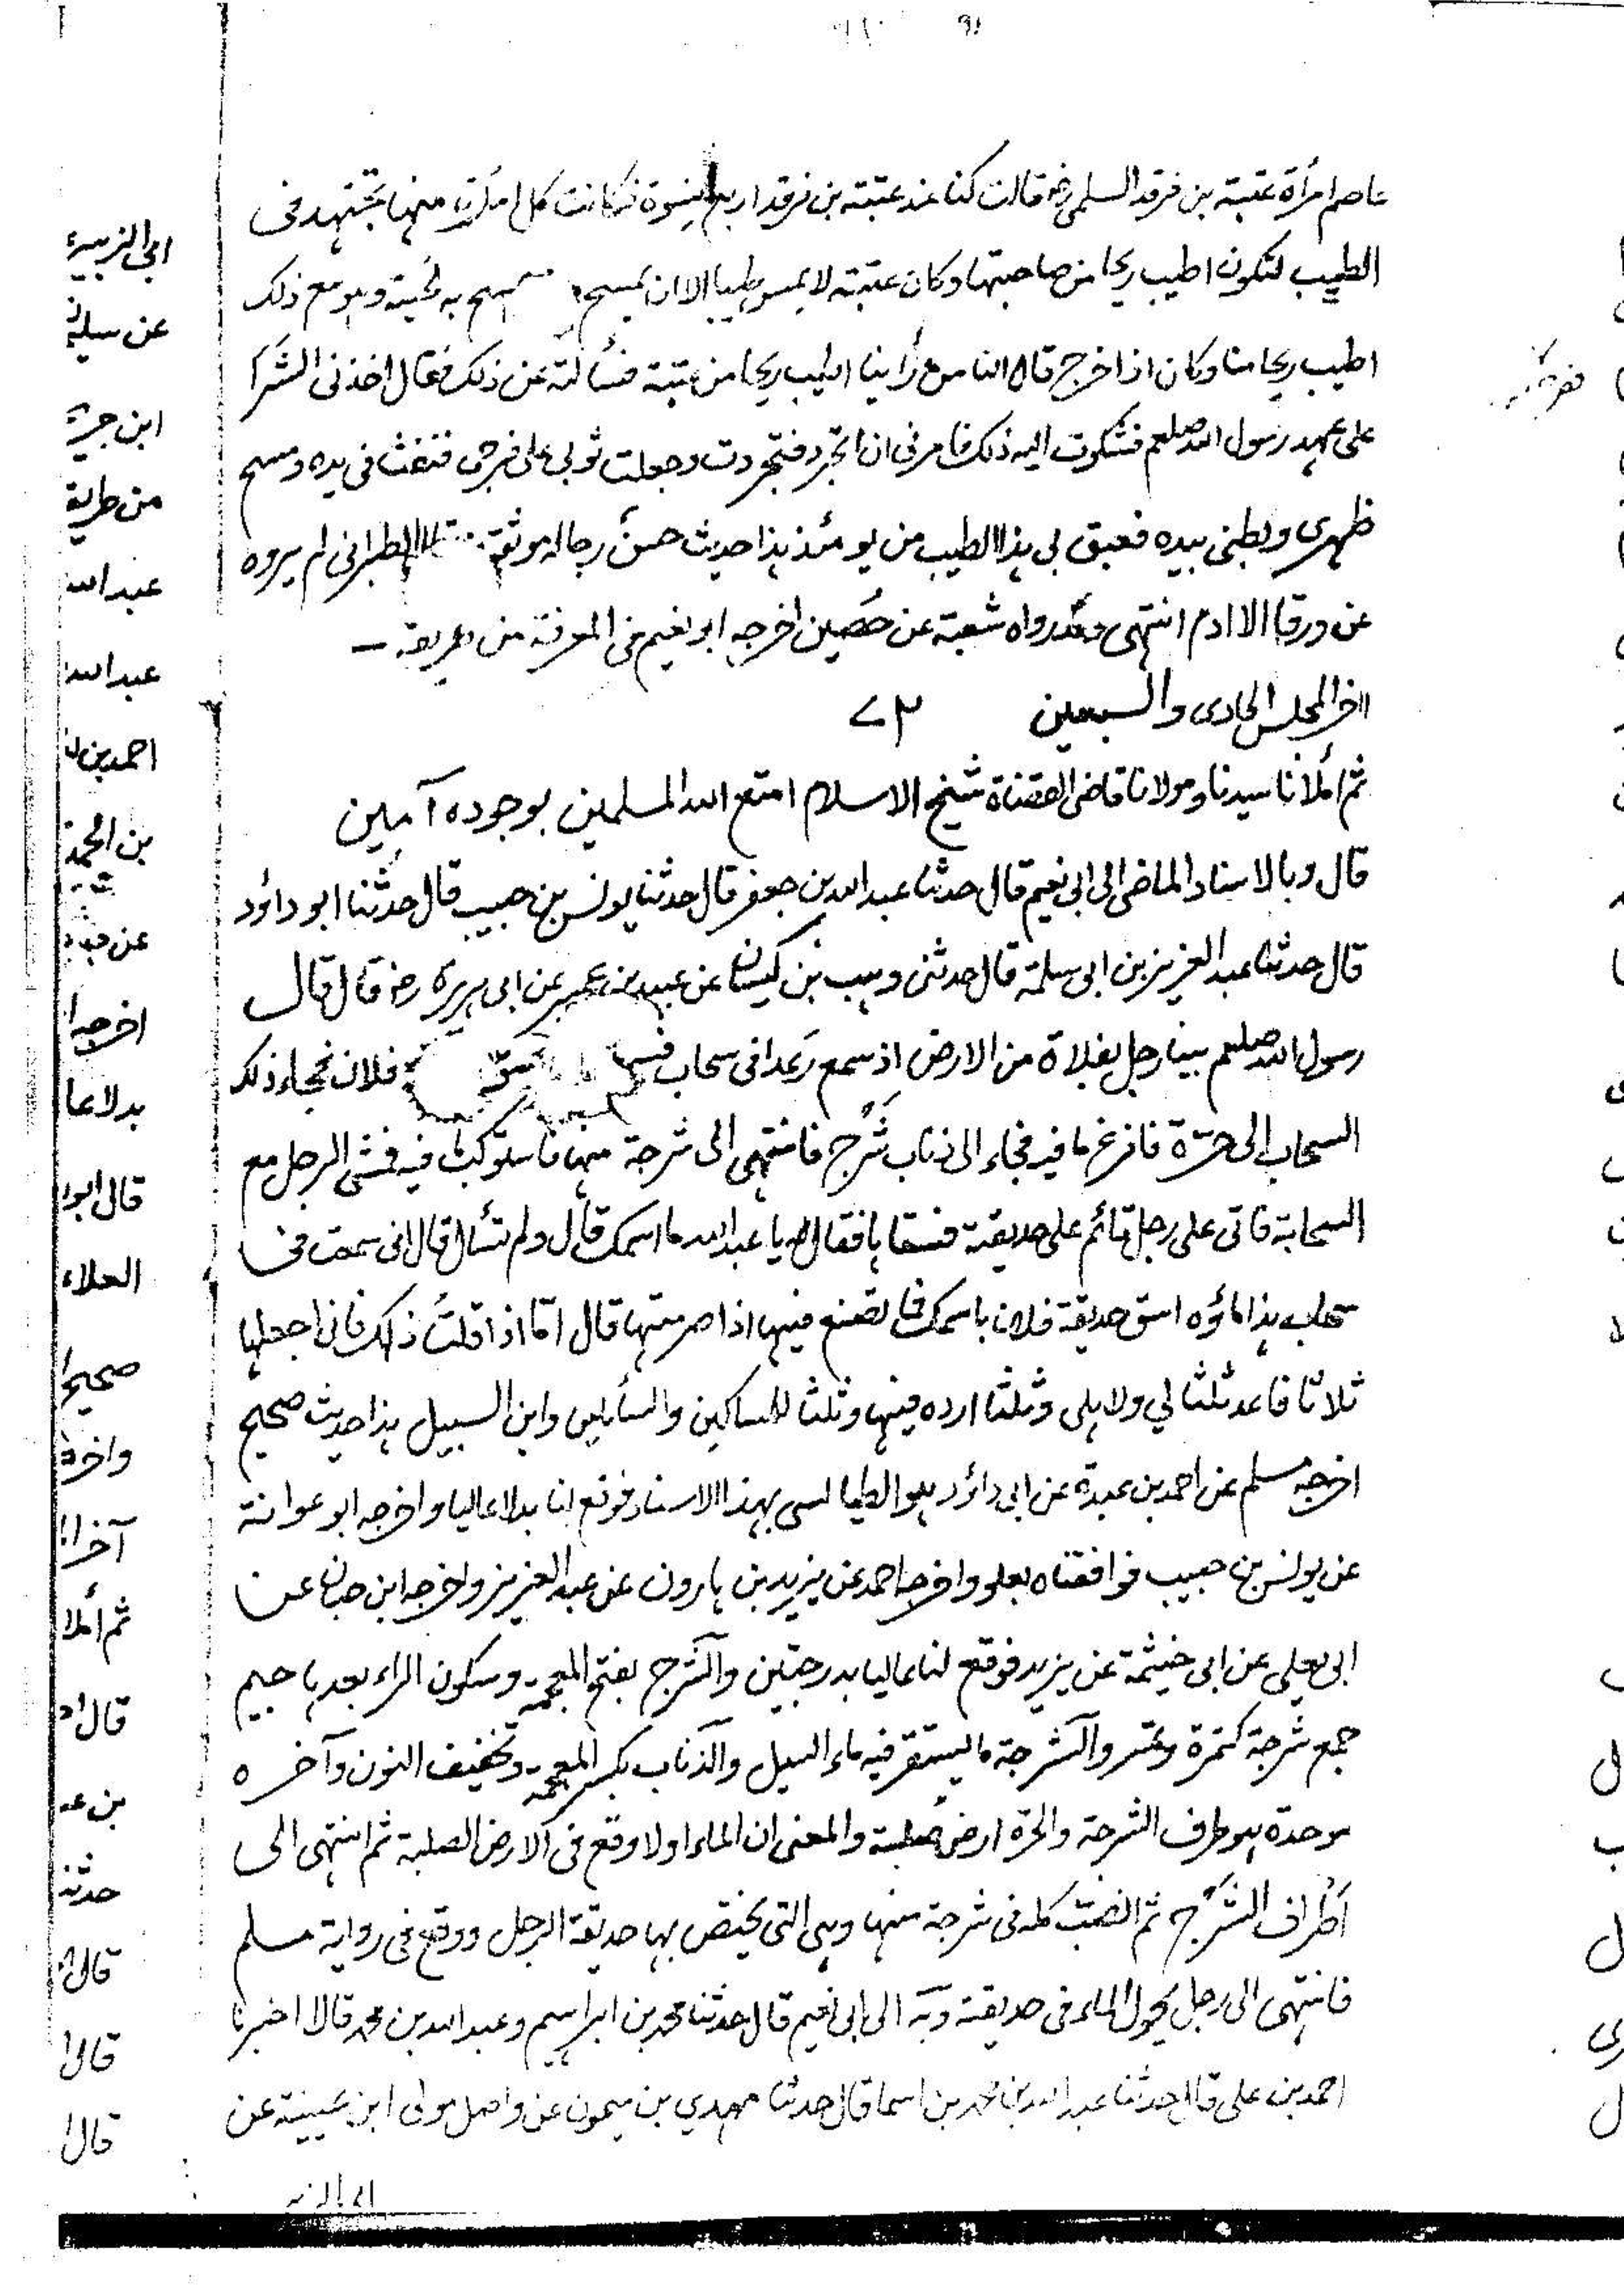 عاصم امرأة عتبة بن فرقد السلمي رض قالت كنا عند عتبة بن فرقد اربع نسوة فكانت كل امرأة منهما تجتهد فى
الطيب لتكون اطيب ريحا من صاحبتها وكان عتبة لا يمس طيبا الا ان يمسح يمسح به لحيته وهو مع ذلك
اطيب ريحا منا وكان اذا خرج قال الناس ما رأينا اطيب ريحا من عتبة فسألته عن ذلك فقال اخذنى الشرا
على عهد رسول الله صلعم فشكوت اليه ذلك فامرنى ان اتجرد فتجردت وجعلت ثوبى على فرجى فنفث فى يده ومسح
ظهرى وبطنى بيده فعبق بى هذا الطيب من يومئذ هذا حديث حسن رجاله موثقو الطبرانى لم يروه
عن ورقا الا ادم انتهى وقد رواه شعبة عن حصين اخرجه ابو نعيم فى المعرفة من طريقه –
اخر المجلس الحادى والسبعين ٧٢
ثم أملانا سيدنا ومولانا قاضى القضاة شيخ الاسلام امتع الله المسلمين بوجوده آمين
قال وبالاسناد الماضى الى ابى نعيم قال حدثنا عبد الله بن جعفر قال حدثنا يونس بن حبيب قال حدثنا ابو داؤد
قال حدثنا عبد العزيز بن ابى سلمة قال حدثنى وهب بن كيسان عن عبيد بن عمير عن ابى هريرة رض قال قال
رسول الله صلعم بينا رجل بفلاة من الارض اذ سمع رعدا فى سحاب فسمع فلان فجاء ذلك
السحاب الى حرّة فافرغ ما فيه فجاء الى ذناب شرج فانتهى الى شرجة منها فاستوكث فيه فمشى الرجل مع
السحابة فاتى على رجل قائم على حديقة فسقاها فقال له يا عبد الله ما اسمك قال ولم تسأل قال انى سمعت فى
سحاب هذا ماؤه اسق حديقة فلان باسمك فما تصنع فيها اذا صرمتها قال اما اذا قلت ذلك فانى اجعلها
ثلاثا فاعد ثلثا لي ولاهلى وثلثا ارده فيها وثلثا للمساكين والسائلين وابن السبيل هذا حديث صحيح
اخرجه مسلم عن احمد بن عبدة عن ابى داؤد هو الطيالسى بهذا الاسناد فوقع لنا بدلا عاليا واخرجه ابو عوانة
عن يونس بن حبيب فوافقناه بعلو واخرجه احمد عن يزيد بن هارون عن عبد العزيز واخرجه ابن حبان عن
ابى يعلى عن ابى خيثمة عن يزيد فوقع لنا عاليا بدرجتين والشرج بفتح المعجمة وسكون الراء بعدها جيم
جمع شرجة كتمرة وتمر والشرجة ما يستقر فيه ماء السيل والذناب بكسر المعجمة وتخفيف النون وآخره
موحدة هو طرف الشرجة والحرة ارض صلبة والمعنى ان الماء اولا وقع فى الارض الصلبة ثم انتهى الى
أطراف الشرج ثم انصب كله فى شرجة منها وهى التى يختص بها حديقة الرجل ووقع فى رواية مسلم
فانتهى الى رجل يحول الماء فى حديقته وبه الى ابى نعيم قال حدثنا محمد بن ابراهيم وعبد الله بن محمد قالا اخبرنا
احمد بن على قال حدثنا عبد الله بن محمد بن اسما قال حدثنا مهدي بن ميمون عن واصل مولى ابن عيينة عن
ابى الزبير
ابى الزبير
عن سلمة
من طريق
عبد الله
عبد الله
احمد بن
اخرجه
بدلا عا
قال ابو
العلاء
صحيح
واخر
آخر
ثم أملا
قال
بن عـ
حدثنـ
قال
قال
قال